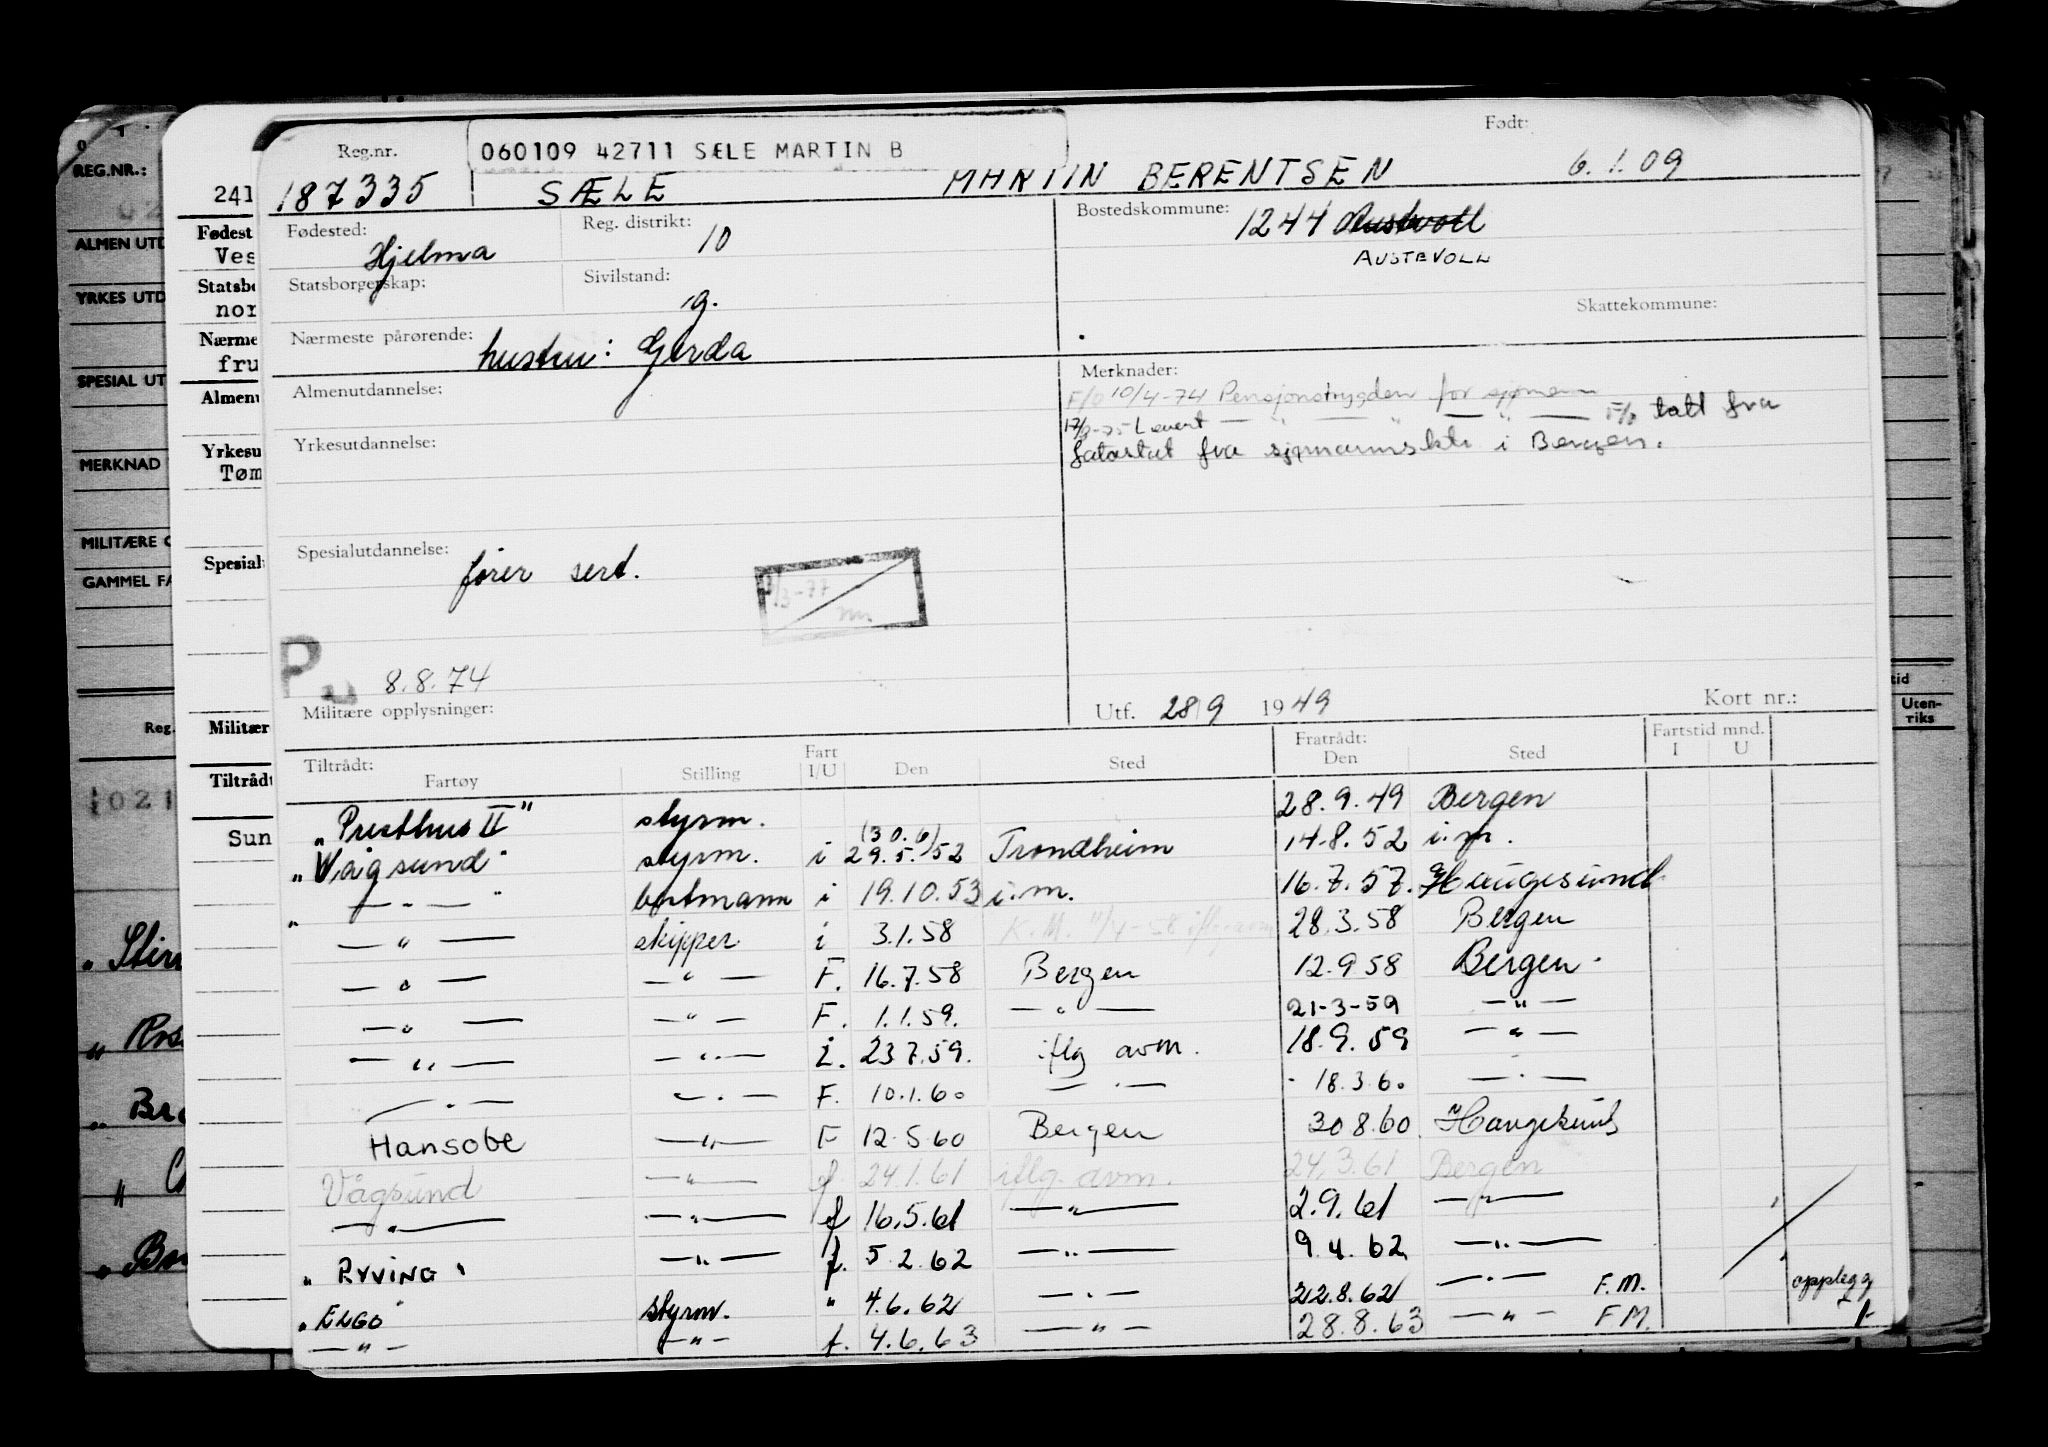 Reg.nr. 060109 42711 SÆLE MARTIN B Født:
187335 SÆLE MARTIN BERENTSEN 6.1.09
Fødested: Hjelma Reg. distrikt: 10 Bostedskommune: 1244 Austevoll
AUSTEVOLL
Statsborgerskap: Sivilstand: g. Skattekommune:
Nærmeste pårørende: hustru: Gerda
Almenutdannelse: Merknader:
F/O 10/4-74 Pensjonstrygden for sjømenn
Levert — " — " — F/O tatt fra
fotostat fra sjømannsktr i Bergen.
Yrkesutdannelse:
Spesialutdannelse: fører sert.
/3-77
P 8.8.74
Militære opplysninger: Utf. 28/9 1949 Kort nr.:
Tiltrådt: Fart Fratrådt: Fartstid mnd.
Fartøy Stilling I/U Den Sted Den Sted I U
„Presthus II" styrm. 28.9.49 Bergen
„Vågsund" styrm. i (30.6) 29.5.52 Trondheim 14.8.52 i.m.
„ — " — " båtsmann i 19.10.53 i.m. 16.7.57. Haugesund
— " — skipper i 3.1.58 K.M. 11/4-58 iflg avm 28.3.58 Bergen
— " — — " — F. 16.7.58 Bergen 12.9 58 Bergen.
— " — — " — F. 1.1.59. — " — 21-3-59 — " —
— " — — " — i. 23 7.59. iflg avm. 18.9.59 — " —
— " — — " — F. 10.1.60 — " — 18.3.60 — " —
Hansobe — " — F 12.5.60 Bergen 30 8.60. Haugesund
Vågsund — " — f 24.1.61 iflg. avm. 24.3.61 Bergen
— " — — " — f 16.5.61 — " — 2.9.61 — " —
„RYVING" — " — f. 5.2.62 — " — 9.4.62 — " —
„ELGO" styrm. " 4.6.62 — " — 22.8.62 — " — F.M. opplegg
— " — — " — f. 4.6.63 — " — 28.8.63 — " — F M.
REG.NR.:
ALMEN UTD
YRKES UTD
SPESIAL UT
MERKNAD
MILITÆRE O
GAMMEL FA
Reg.
021
241
Fødest
Ves
Statsbo
nor
Nærme
fru
Almenu
Yrkesu
Tøm
Spesial
Militær
Tiltrådt
Sun
tid
Uten-
riks